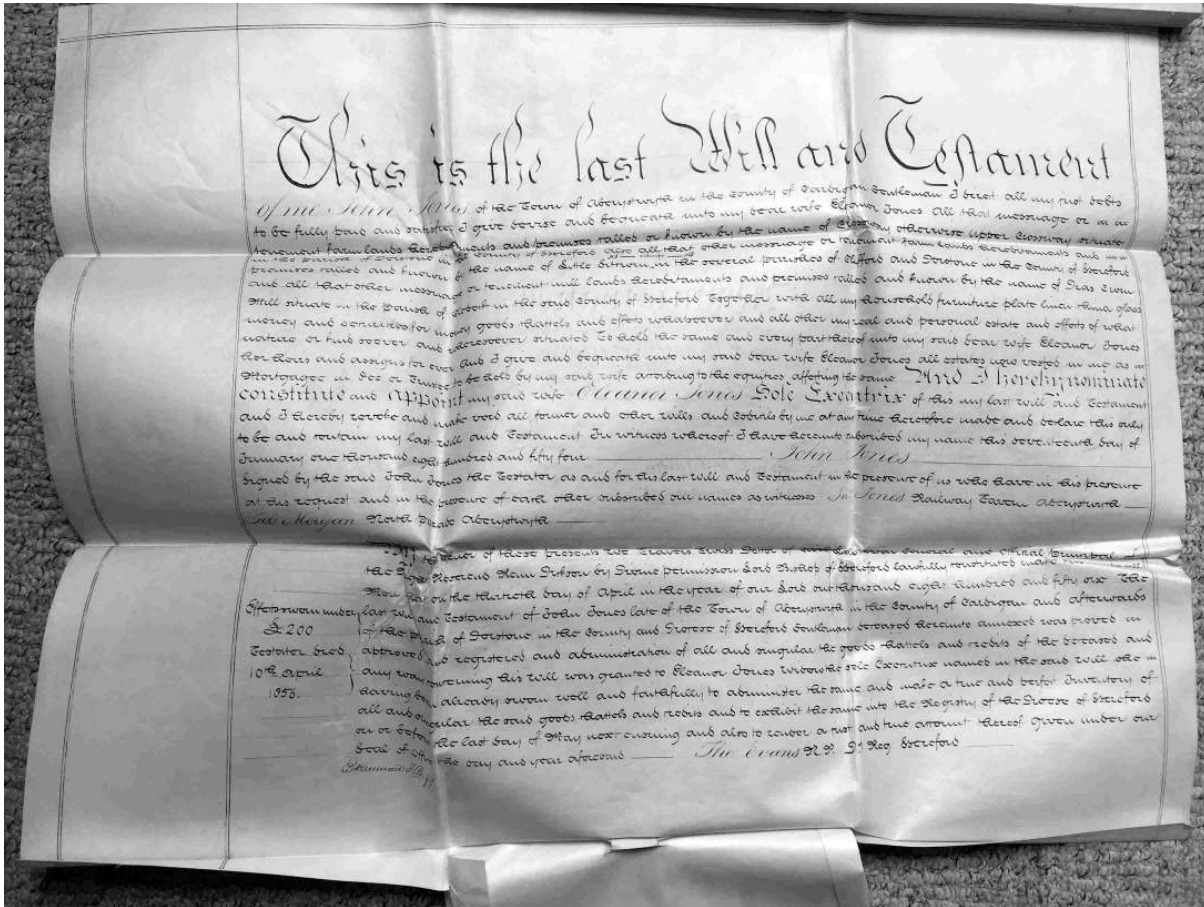 This is the last Will and Testament
of me John Jones of the Town of Aberystwith in the County of Cardigan Gentleman I direct all my just debts
to be fully paid and satisfied I give devise and bequeath unto my dear wife Eleanor Jones All that messuage or
tenement farm lands hereditaments and premises called or known by the name of Crossway otherwise upper Crossway situate
in the parish of Dorstone in the County of Hereford also all that other messuage or tenement farm lands hereditaments and
premises called and known by the name of Little in the several parishes of Clifford and Dorstone in the County of Hereford
and all that other messuage or tenement mill lands hereditaments and premises called and known by the name of
Mill situate in the Parish of in the said County of Hereford Together with all my household furniture plate linen china glass
money and securities for money goods chattels and effects whatsoever and all other my real and personal estate and effects of what
nature or kind soever and wheresoever situated To hold the same and every part thereof unto my said dear wife Eleanor Jones
her heirs and assigns for ever And I give and bequeath unto my said dear wife Eleanor Jones all estates now vested in me as
Mortgagee in fee or Trustee to be held by my said wife according to the equities affecting the same And I hereby nominate
constitute and appoint my said wife Eleanor Jones Sole Executrix of this my last will and Testament
and I hereby revoke and make void all former and other wills and Codicils by me at any time heretofore made and declare this only
to be and contain my last will and Testament In witness whereof I have hereunto subscribed my name this seventeenth day of
January one thousand eight hundred and fifty four John Jones
Signed by the said John Jones the Testator as and for his last will and Testament in the presence of us who have in his presence
at his request and in the presence of each other subscribed our names as witnesses Jn Jones Railway Tavern Aberystwith
Morgan North Parade Aberystwith
of these presents We Travers Twiss Doctor of Vicar General and Official Principal
the Right Reverend Renn Dickson by Divine permission Lord Bishop of Hereford lawfully constituted make
that on the thirtieth day of April in the year of our Lord one thousand eight hundred and fifty six The
last will and Testament of John Jones late of the Town of Aberystwith in the County of Cardigan and afterwards
of the parish of Dorstone in the County and Diocese of Hereford Gentleman deceased hereunto annexed was proved
approved and registered and administration of all and singular the goods chattels and credits of the deceased and
any way concerning his will was granted to Eleanor Jones widow the sole Executrix named in the said will she
having been already sworn well and faithfully to administer the same and make a true and perfect Inventory of
all and singular the said goods chattels and credits and to exhibit the same into the Registry of the Diocese of Hereford
on or before the last day of May next ensuing and also to render a just and true account thereof Given under our
Seal of office the day and year aforesaid Tho Evans N.P. Dy Reg Hereford
Effects sworn under
£200
Testator died
10th April
1856.
Examined